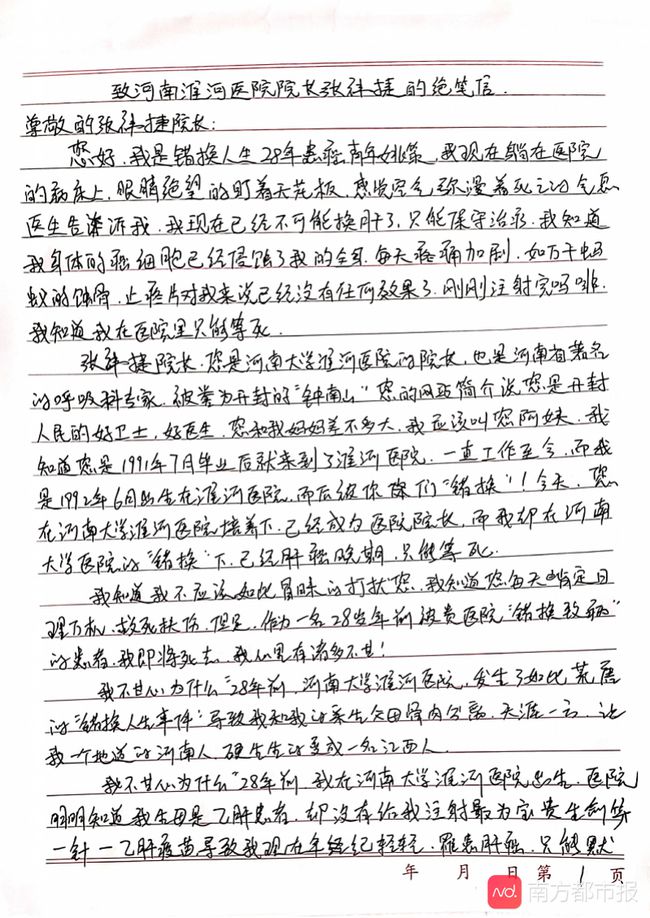 致河南淮河医院院长张祎捷的绝笔信.
尊敬的张祎捷院长:
您好.我是错换人生28年患癌青年姚策,我现在躺在医院
的病床上,眼睛绝望的盯着天花板,感觉空气弥漫着死亡的气息
医生告诉我,我现在已经不可能换肝了,只能保守治疗.我知道
我身体的癌细胞已经侵蚀了我的全身.每天疼痛加剧.如万千蚂
蚁的蚀骨.止疼片对我来说已经没有任何效果了.刚刚注射完吗啡.
我知道我在医院里只能等死.
张祎捷院长.您是河南大学淮河医院的院长,也是河南省著名
的呼吸科专家.被誉为开封的“钟南山”您的网站简介说您是开封
人民的好卫士,好医生.您和我妈妈差不多大.我应该叫您阿姨.我
知道您是1991年7月毕业后就来到了淮河医院.一直工作至今.而我
是1992年6月出生在淮河医院.而后被你院们“错换”!今天.您
在河南大学淮河医院培养下.已经成为医院院长,而我却在河南
大学医院的“错换”下.已经肝癌晚期,只能等死.
我知道我不应该如此冒昧的打扰您.我知道您每天肯定日
理万机.救死扶伤.但是.作为一名28岁年前被贵医院“错换致病”
的患者.我即将死去.我心里有诸多不甘!
我不甘心为什么“28年前.河南大学淮河医院,发生了如此荒唐
的“错换人生事件”导致我和我的亲生父母骨肉分离.天涯一方.让
我一个地道的河南人.硬生生的变成一名江西人.
我不甘心为什么“28年前.我在河南大学淮河医院出生.医院
明明知道我生母是乙肝患者.却没有给我注射最为宝贵生命第
一针—乙肝疫苗导致我现在年纪轻轻.罹患肝癌.只能默
年 月 日第 1 页
Nd. 南方都市报